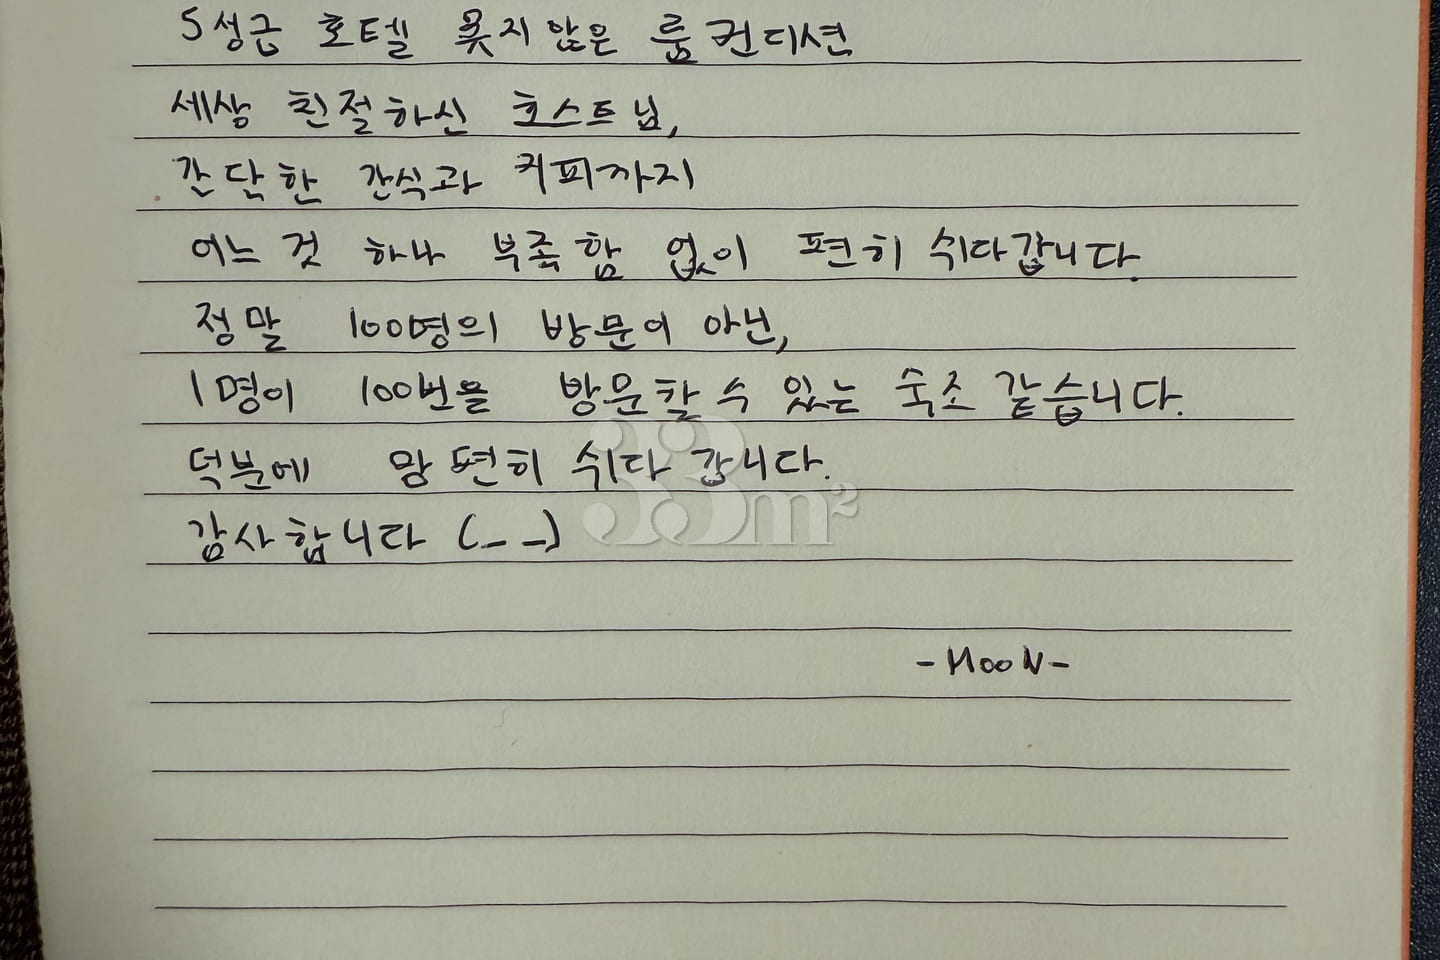 5성급 호텔 못지 않은 룸 컨디션
세상 친절하신 호스트님,
간단한 간식과 커피까지
어느 것 하나 부족함 없이 편히 쉬다갑니다.
정말 100명의 방문이 아닌,
1명이 100번을 방문할 수 있는 숙소 같습니다.
덕분에 맘 편히 쉬다 갑니다.
33m²
감사합니다 (_ _)
-MooN-